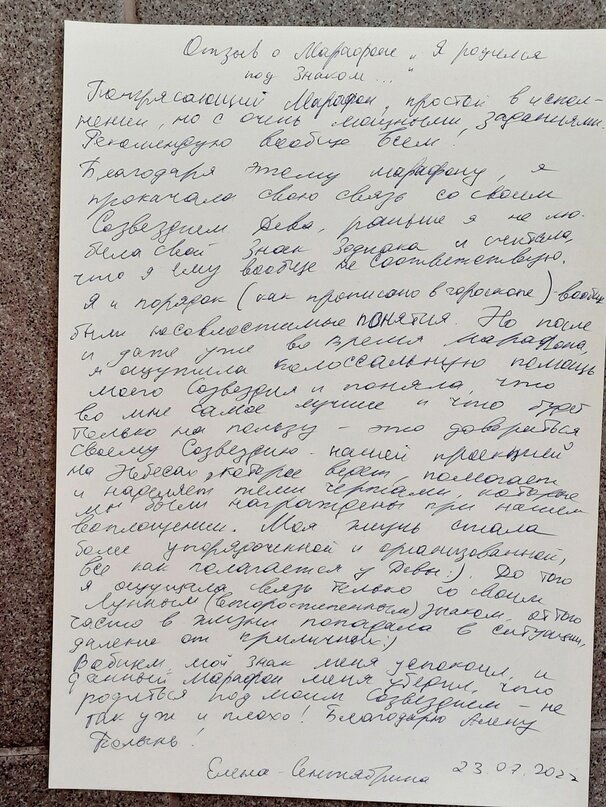 Отзыв о Марафоне „Я родился
под Знаком..."
Потрясающий Марафон, простой в испол-
нении, но с очень мощными заданиями.
Рекомендую вообще всем!
Благодаря этому марафону, я
прокачала свою связь со своим
Созвездием Дева, раньше я не лю-
била свой Знак Зодиака и считала,
что я ему вообще не соответствую.
Я и порядок (как прописано в гороскопе) вообще
были несовместимые понятия. Но после
и даже уже во время марафона,
я ощутила колоссальную помощь
моего Созвездия и поняла, что
во мне самое лучшее и что будет
только на пользу - это довериться
своему Созвездию - нашей проекцией
на Небесах, которое ведет, помогает
и наделяет теми чертами, которые
мы были награждены при нашем
воплощении. Моя жизнь стала
более упорядоченной и организованной,
все как полагается у Девы:). До того
я ощущала связь только со своим
Лунным (второстепенным) знаком, от того
часто в жизни попадала в ситуации,
далекие от приличной:)
В общем, мой знак меня успокоил, и
данный Марафон меня убедил, что
родиться под моим Созвездием - не
так уж и плохо! Благодарю Алену
Полынь!
Елена-Сентябрина 23.07.2022